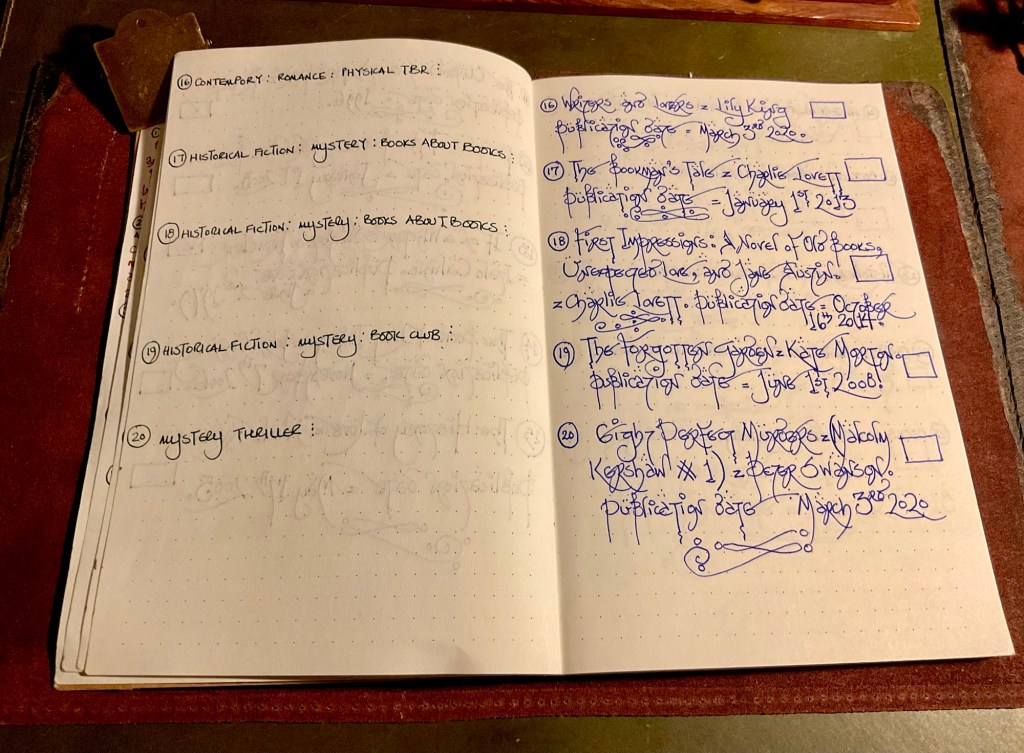 16 CONTEMPORY : ROMANCE : PHYSICAL TBR :
17 HISTORICAL FICTION : MYSTERY : BOOKS ABOUT BOOKS :
18 HISTORICAL FICTION : MYSTERY : BOOKS ABOUT BOOKS :
19 HISTORICAL FICTION : MYSTERY : BOOK CLUB :
20 MYSTERY THRILLER :
16 Writers and Lovers = Lily King
Publication Date = March 3RD 2020.
17 The Bookman's Tale = Charlie Lovett
Publication Date = January 1ST 2013
18 First Impressions : A Novel of Old Books,
Unexpected Love, and Jane Austin.
= Charlie Lovett. Publication Date = October
16th 2014.
19 The Forgotten Garden = Kate Morton.
Publication Date = June 1ST 2008.
20 Eight Perfect Murders = (Malcolm
Kershaw # 1) = Peter Swanson.
Publication Date March 3RD 2020